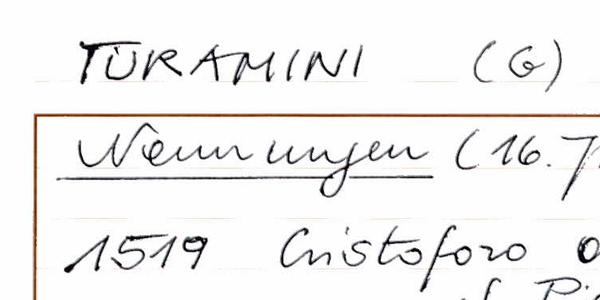 TURAMINI (G)
Nennungen (16.
1519 Cristoforo